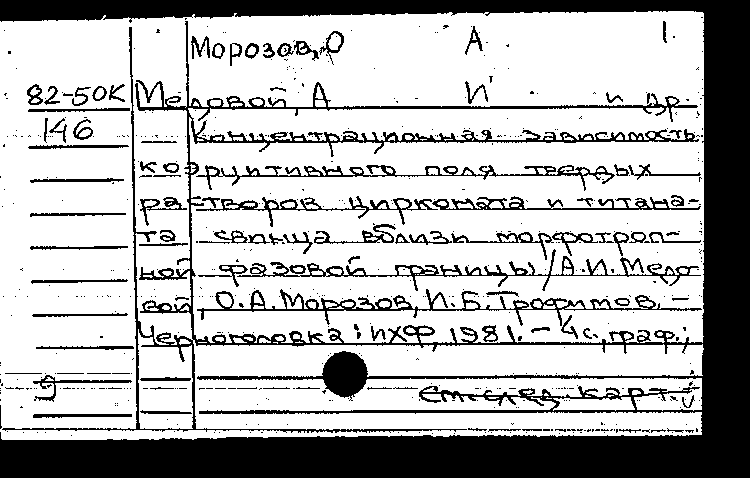 Морозов, О А 1.
82-50К Меловой, А И и др.
146 Концентрационная зависимость
коэрцитивного поля твердых
растворов цирконата и титана-
та свинца вблизи морфотроп-
ной фазовой границы / А.И. Мело
вой, О.А. Морозов, И.Б. Трофимов. –
Черноголовка : ИХФ, 1981. – 4 с., граф.;
См. след. карт.